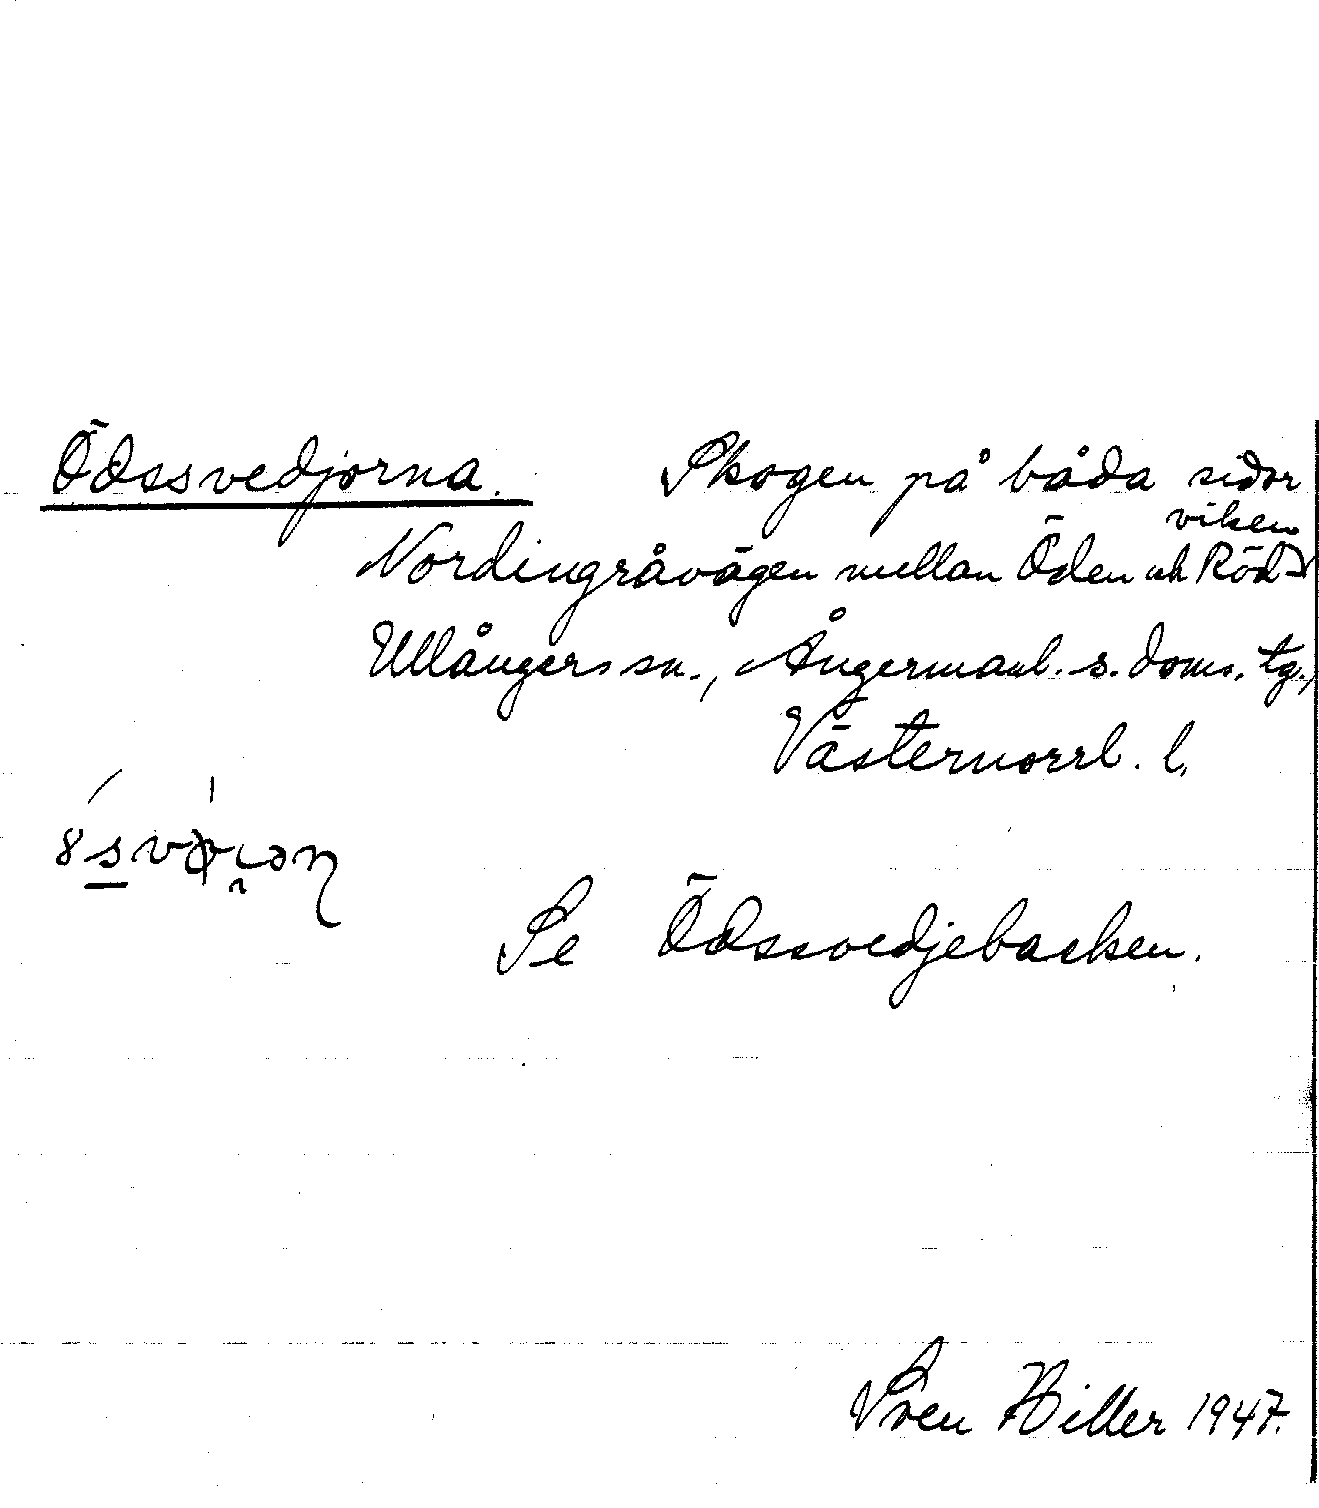 Ödssvedjorna. Skogen på båda sidor
Nordingråvägen mellan Öden och Röd-
viken
Ullångers sn., Ångermanl. s. doms. tg.,
Västernorrl. l.
Se Ödssvedjebacken.
Sven Hiller 1947.